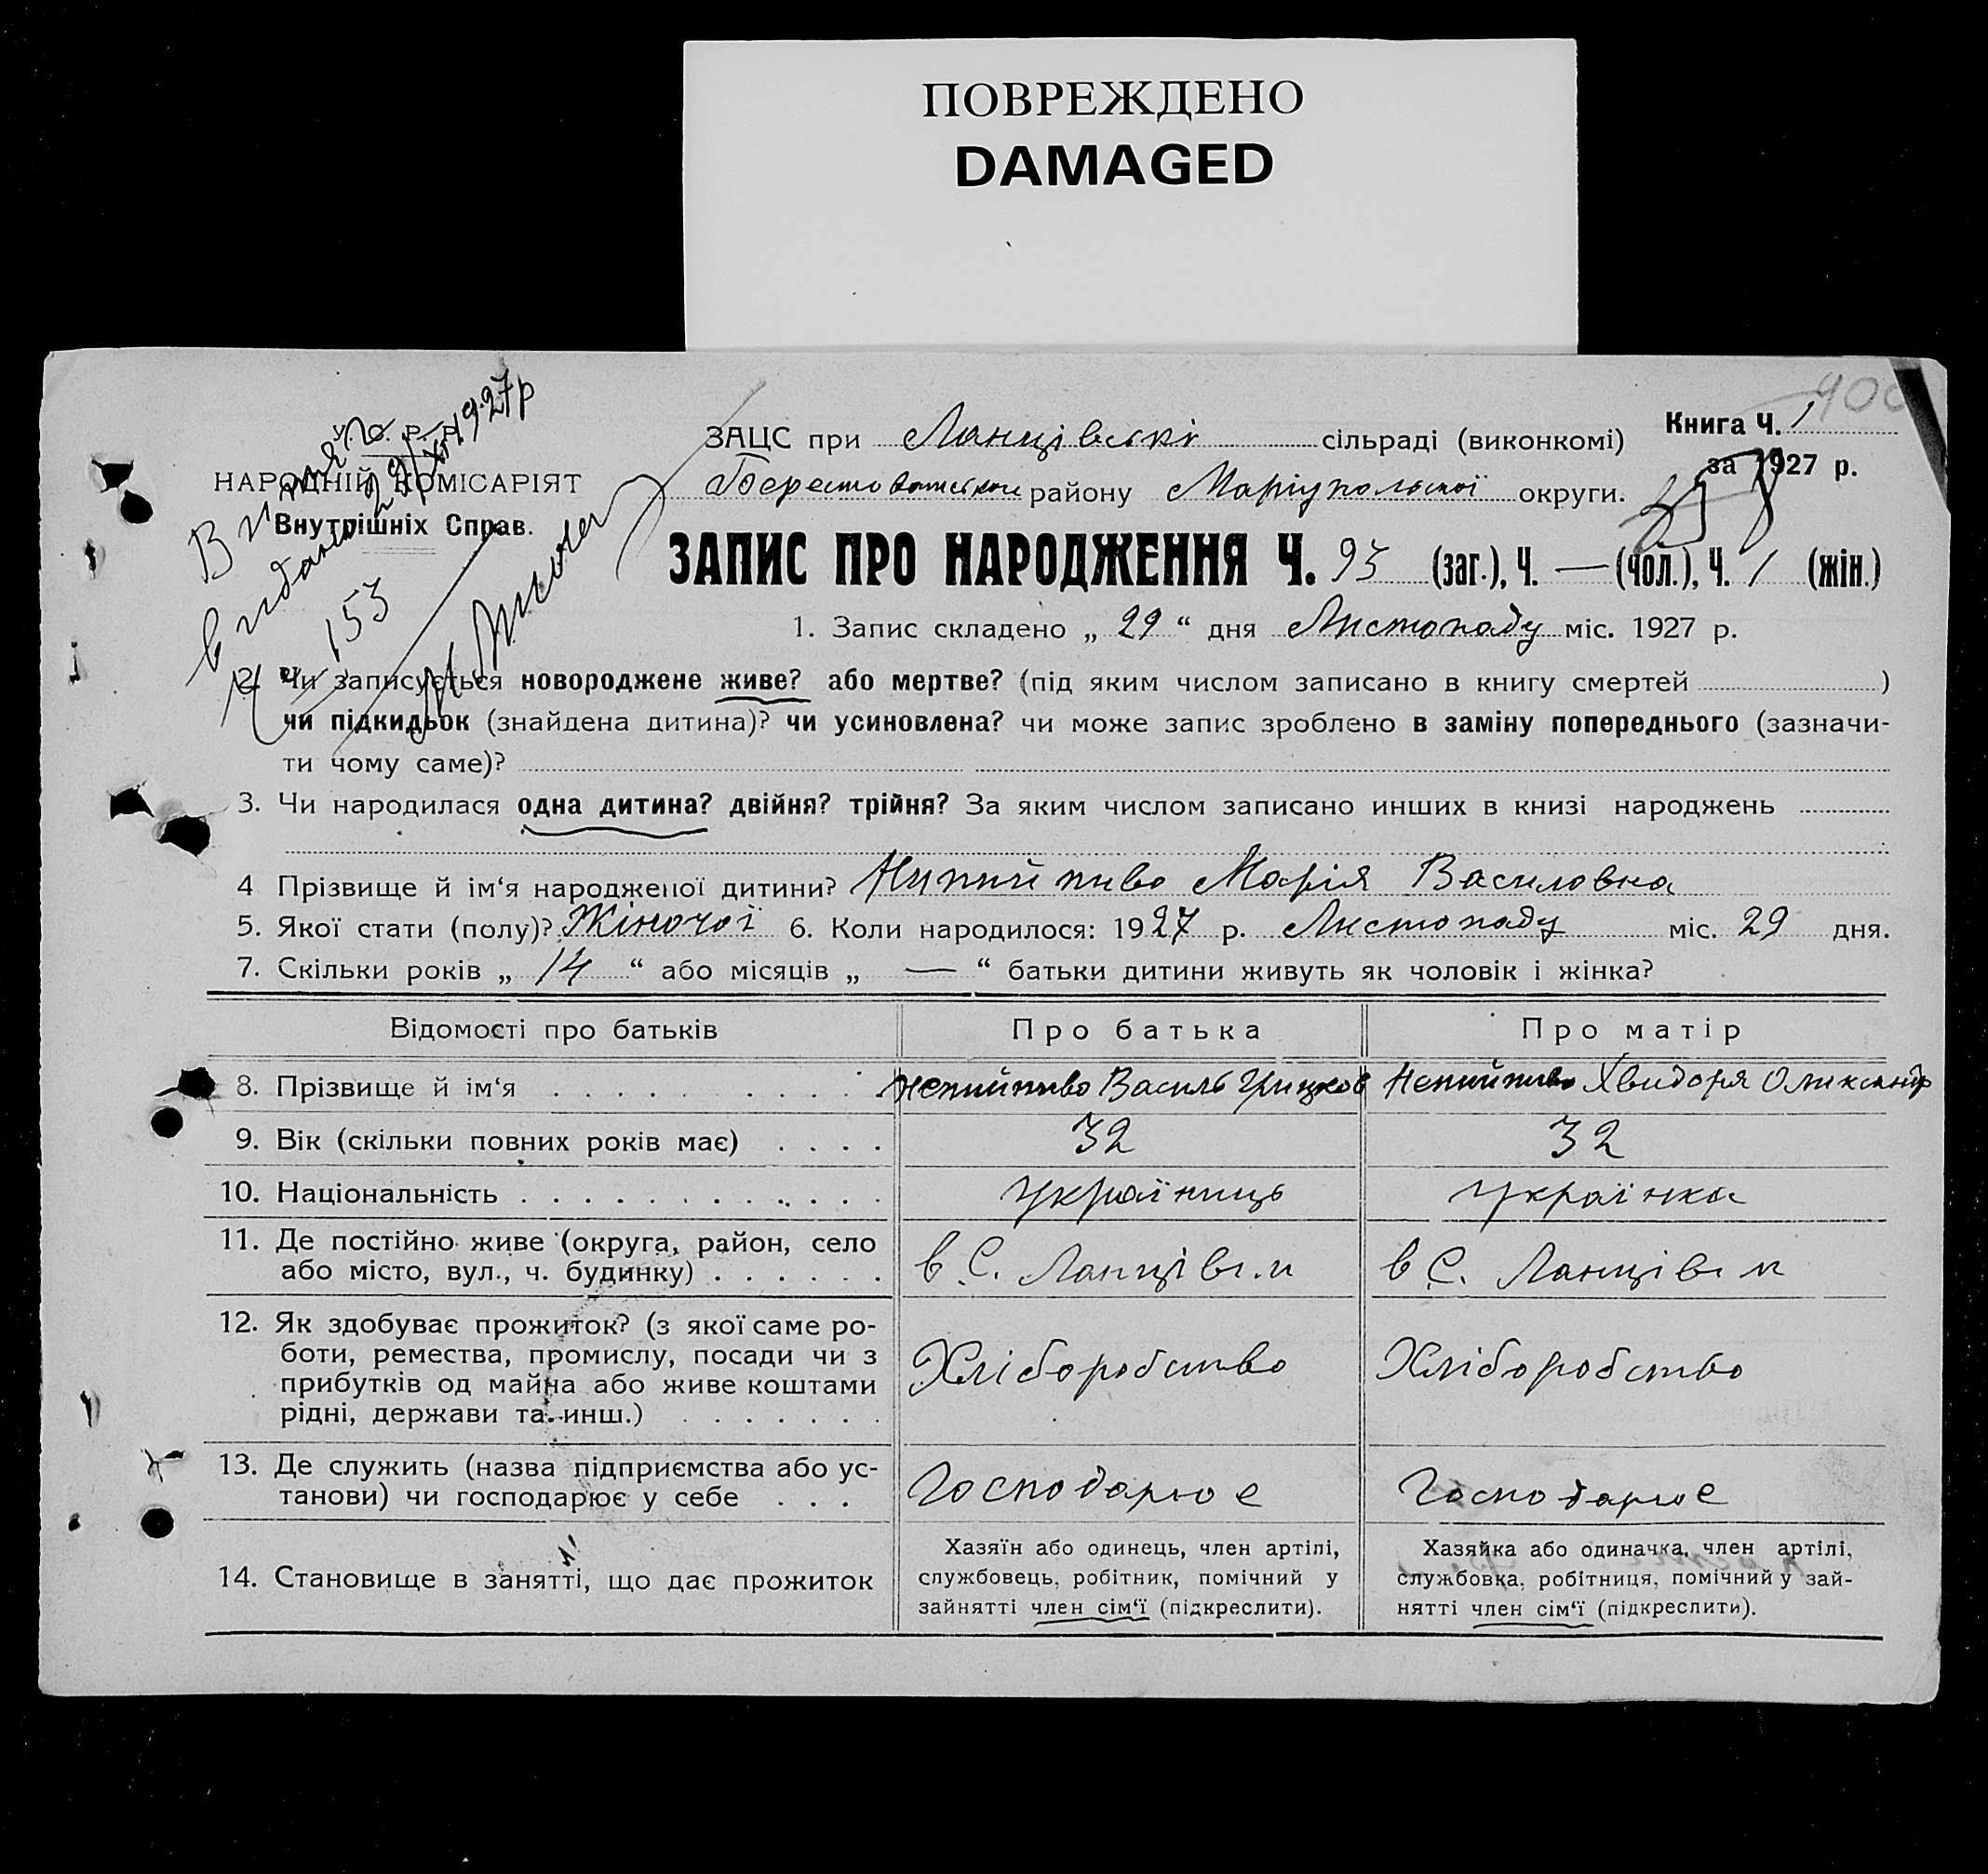 ПОВРЕЖДЕНО
DAMAGED
400
У. С. Р. Р.
НАРОДНІЙ КОМІСАРІЯТ
Внутрішніх Справ.
Витяг
видано 29/XI 1927 р
153
ЗАЦС при Ланцівські сільраді (виконкомі)
Книга Ч. 1
за 1927 р.
району Маріупольської округи.
ЗАПИС ПРО НАРОДЖЕННЯ Ч. 93 (заг.), Ч. — (чол.), Ч. 1 (жін.)
1. Запис складено „ 29 “ дня Листопаду міс. 1927 р.
2. Чи записується новороджене живе? або мертве? (під яким числом записано в книгу смертей )
чи підкидьок (знайдена дитина)? чи усиновлена? чи може запис зроблено в заміну попереднього (зазначи-
ти чому саме)?
3. Чи народилася одна дитина? двійня? трійня? За яким числом записано инших в книзі народжень
4 Прізвище й ім‘я народженої дитини? Нипийпиво Марія Василовна
5. Якої стати (полу)? Жіночої 6. Коли народилося: 1927 р. Листопаду міс. 29 дня.
7. Скільки років „ 14 “ або місяців „ — “ батьки дитини живуть як чоловік і жінка?
Відомості про батьків Про батька Про матір
8. Прізвище й ім‘я . . . . . . . . . . . Непийпиво Василь Грицков Непийпиво Хвидоря Олександр
9. Вік (скільки повних років має) . . . . 32 32
10. Національність . . . . . . . . . . . . . Україниць Українка
11. Де постійно живе (округа, район, село
або місто, вул., ч. будинку) . . . . . . в С. Ланціви в С. Ланціви
12. Як здобуває прожиток? (з якої саме ро-
боти, ремества, промислу, посади чи з
прибутків од майна або живе коштами
рідні, держави та инш.) . . . . . . . Хліборобство Хліборобство
13. Де служить (назва підприємства або ус-
танови) чи господарює у себе . . . Господарює Господарює
14. Становище в занятті, що дає прожиток
Хазяїн або одинець, член артілі,
службовець, робітник, помічний у
зайнятті член сім‘ї (підкреслити).
Хазяйка або одиначка, член артілі,
службовка, робітниця, помічний у зай-
нятті член сім‘ї (підкреслити).